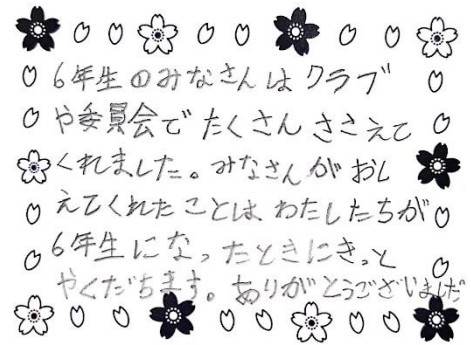 6年生のみなさんはクラブ
や委員会でたくさんささえて
くれました。みなさんがおし
えてくれたことはわたしたちが
6年生になったときにきっと
やくだちます。ありがとうございましだ